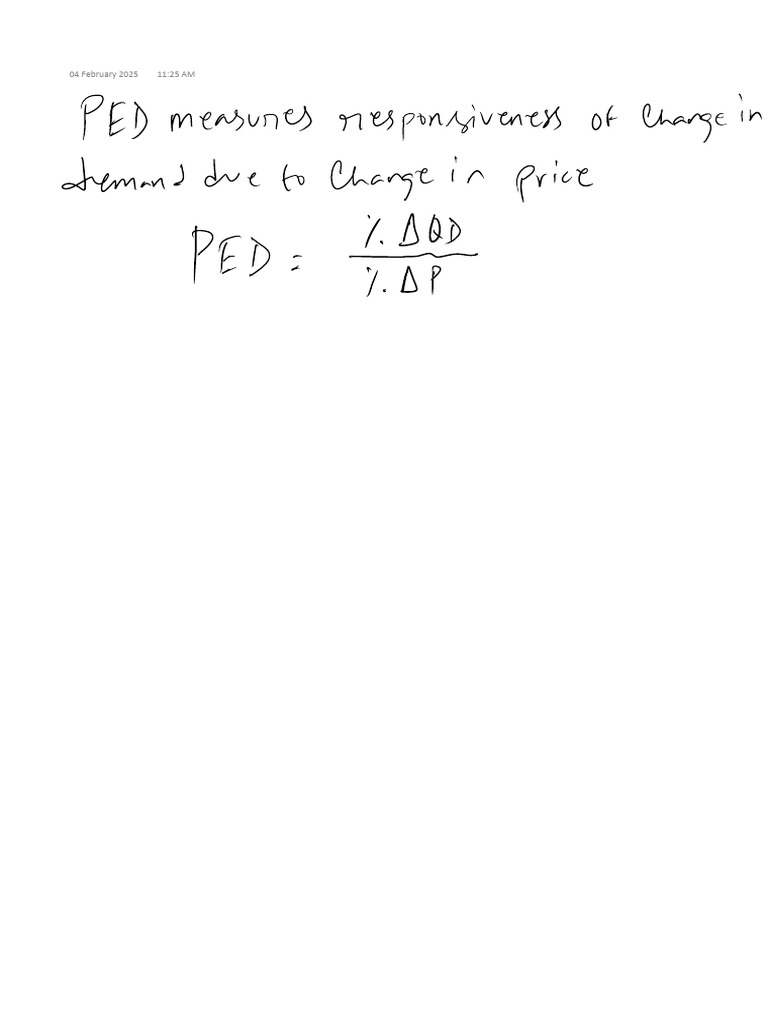 04 February 2025 11:25 AM
PED measures responsiveness of change in
demand due to change in price
PED = % ΔQD
% ΔP